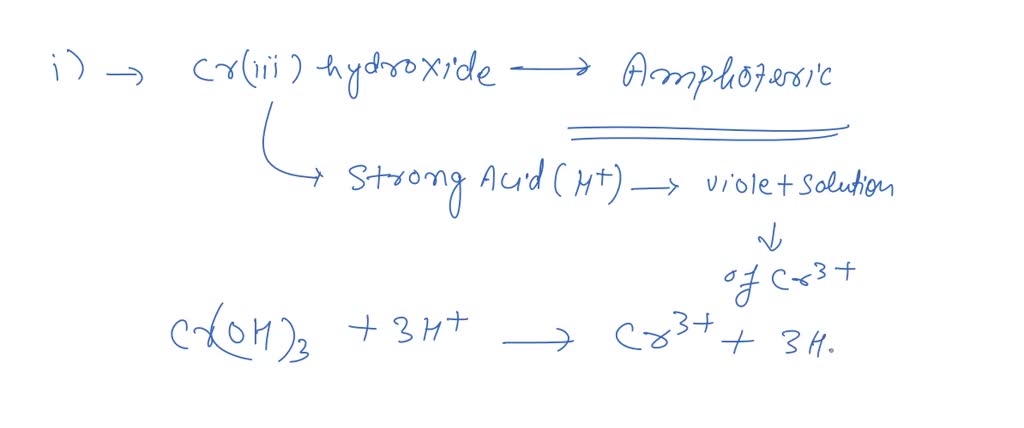 i) → Cr(iii) hydroxide → Amphoteric
→ Strong Acid (H+) → violet solution
↓
of Cr³⁺
Cr(OH)₃ + 3H⁺ → Cr³⁺ + 3H.